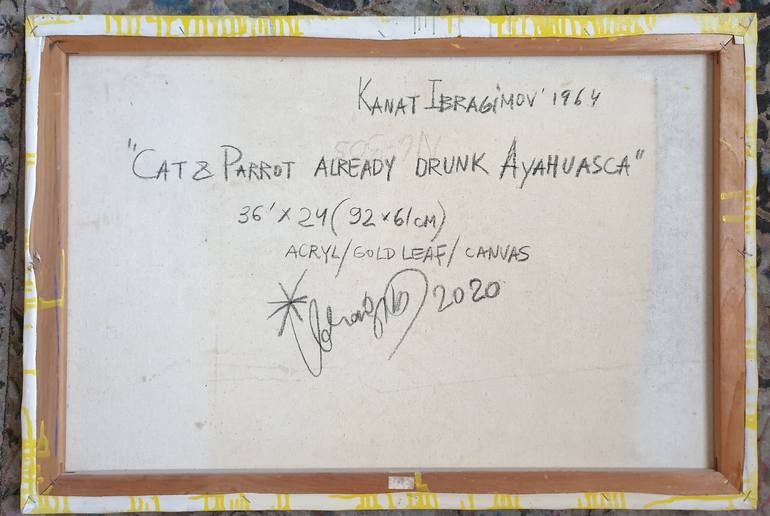 KANAT IBRAGIMOV' 1964
"CAT & PARROT ALREADY DRUNK AYAHUASCA"
36' x 24 (92 x 61 CM)
ACRYL/GOLD LEAF/ CANVAS
2020